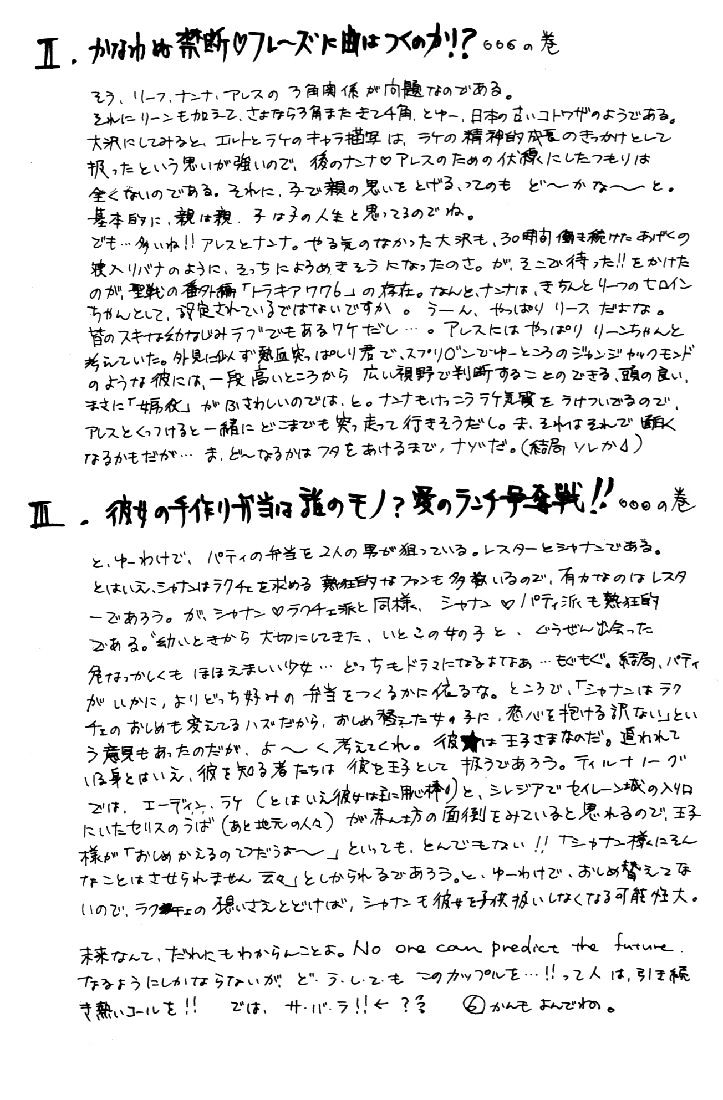 II. かなわぬ禁断♡フレーズに曲はつくのか!? 。。。の巻
そう、リーフ、ナンナ、アレスの3角関係が問題なのである。
それにリーンも加えて、さよなら3角また来て4角、とゆー、日本の古いコトワザのようである。
大沢にしてみると、エルトとラケのキャラ描写は、ラケの精神的成長のきっかけとして
扱ったという思いが強いので、後のナンナ♡アレスのための伏線にしたつもりは
全くないのである。それに、子で親の思いをとげる、ってのも ど〜かな〜と。
基本的に、親は親、子は子の人生と思ってるのでね。
でも…多いね!! アレスとナンナ。やる気のなかった大沢も、30時間働き続けたあげくの
狼入りバナのように、そっちによろめきそうになったのさ。が、そこで待った!!をかけた
のが、聖戦の番外編「トラキア776」の存在。なんと、ナンナは、きちんとリーフのヒロイン
ちゃんとして、設定されているではないですか。うーん、やっぱり リーフだよな。
皆のスキな幼なじみラブでもあるワケだし…。アレスにはやっぱり リーンちゃんと
考えていた。外見に似ず熱血突っぱしり君で、スプリガンでゆーところのジャンジャックモンド
のような彼には、一段高いところから 広い視野で判断することのできる、頭の良い、
まさに「姉役」がふさわしいのでは、と。ナンナもけっこうラケ気質をうけついでるので、
アレスとくっつけると一緒にどこまでも突っ走って行きそうだし。ま、それはそれで面白く
なるかもだが… ま、ど〜なるかはフタをあけるまで、ナゾだ。(結局ソレか⊿)
III. 彼女の手作り弁当は誰のモノ? 愛のランチ争奪戦!! 。。。の巻
と、ゆーわけで、パティの弁当を2人の男が狙っている。レスターとシャナンである。
とはいえ、シャナンはラクチェを求める 熱狂的なファンも多数いるので、有力なのはレスタ
ーであろう。が、シャナン♡ラクチェ派と同様、シャナン♡パティ派も熱狂的
である。幼いときから 大切にしてきた、いとこの女の子と、ぐうぜん出会った
危なっかしくも ほほえましい少女… どっちもドラマになるよなあ…もぐもぐ。結局、パティ
がいかに、よりどっち好みの 弁当をつくるかに依るな。ところで、「シャナンはラク
チェのおしめも変えてるハズだから、おしめ替えた女の子に、恋心を抱ける訳ない」とい
う意見もあったのだが、よ〜く考えてくれ。彼★は王子さまなのだ。追われて
いる身とはいえ、彼を知る者たちは 彼を王子として 扱うであろう。ティルナノーグ
では、エーディン、ラケ(とはいえ彼女は主に用心棒)と、シレジアでセイレーン城の入り口
にいたセリスのうば(あと地元の人々)が赤ん坊の面倒をみていると思れるので、王子
様が「おしめかえるのてつだうよ〜」といっても、とんでもない!!「シャナン様にそん
なことはさせられません 云々」としかられるであろう。と、ゆーわけで、おしめ替えてな
いので、ラクチェの想いさえとどけば、シャナンも彼女を子供扱いしなくなる可能性大。
未来なんて、だれにもわからんことよ。No one can predict the future.
なるようにしかならないが、ど・う・し・て・も このカップルを…!!って人は、引き続
き熱いコールを!! では、サ・バ・ラ!!←?? ⑥かんもよんでねの。